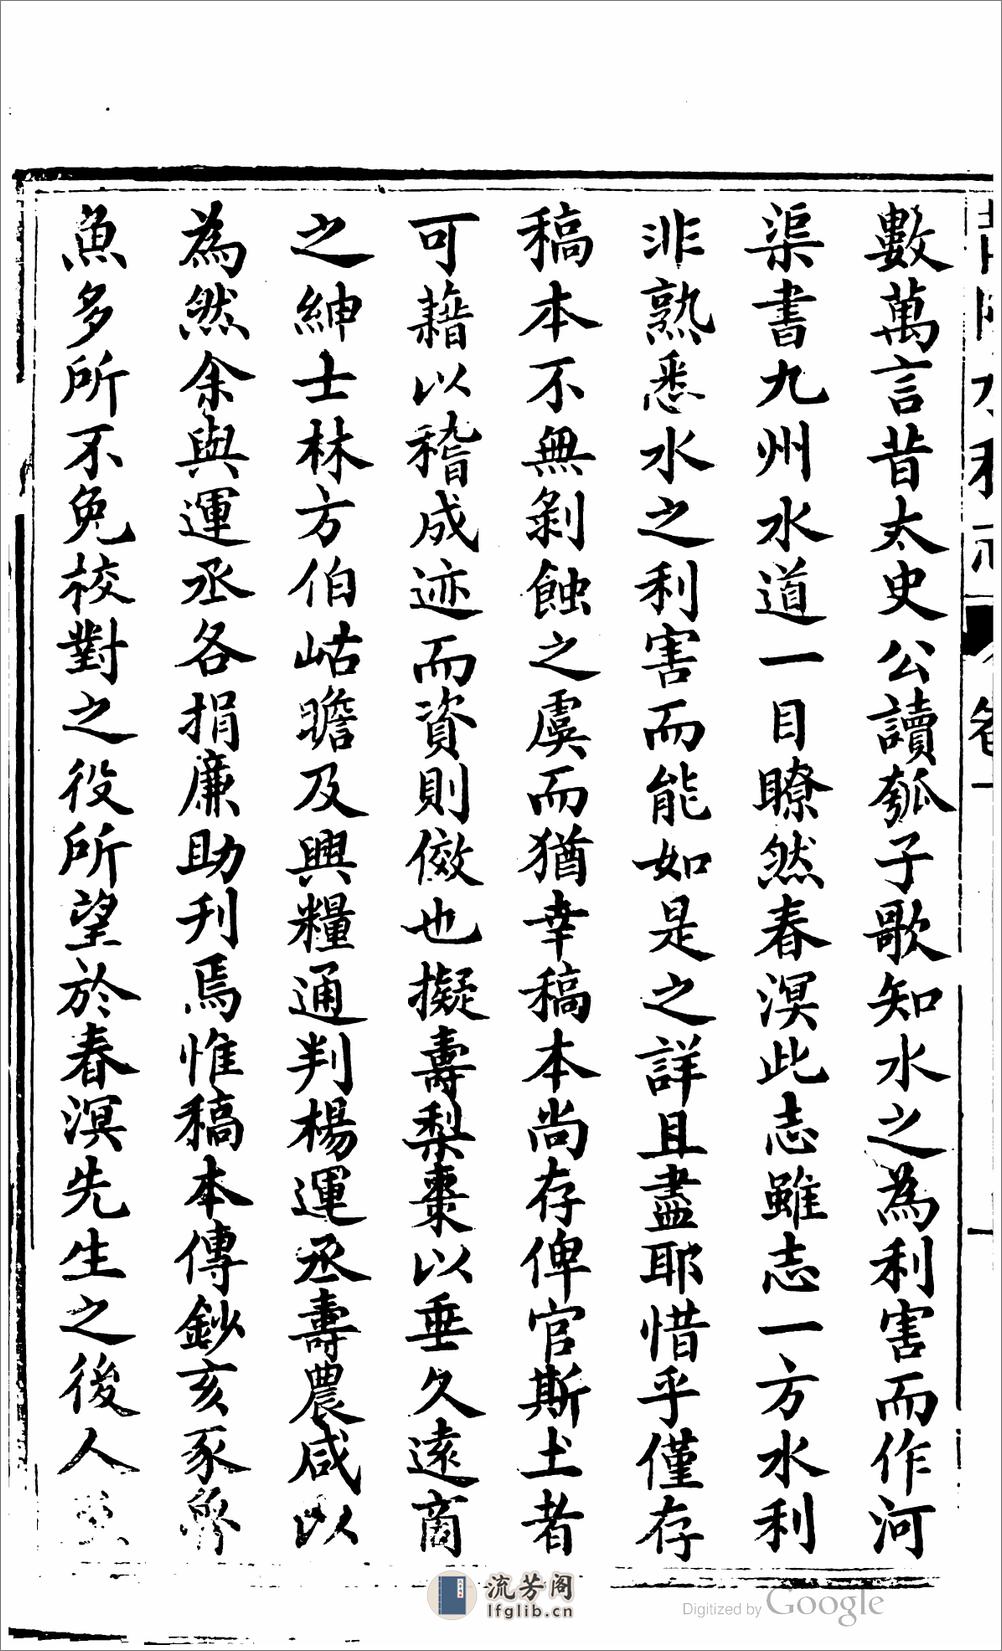 數萬言昔太史公讀瓠子歌知水之為利害而作河
渠書九州水道一目瞭然春溟此志雖志一方水利
非熟悉水之利害而能如是之詳且盡耶惜乎僅存
稿本不無剝蝕之虞而猶幸稿本尚存俾官斯土者
可藉以稽成迹而資則傚也擬壽梨棗以垂久遠商
之紳士林方伯岵瞻及興糧通判楊運丞壽農咸以
為然余與運丞各捐廉助刋焉惟稿本傳鈔亥豕魯
魚多所不免校對之役所望於春溟先生之後人
水利志
卷一
一
流芳阁
lfglib.cn
Digitized by Google